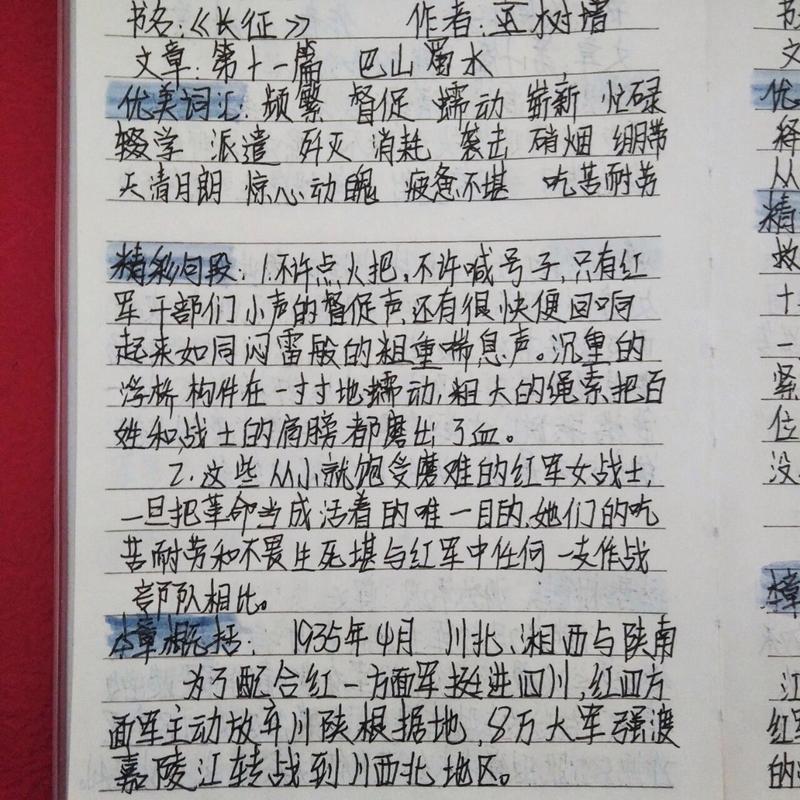 书名:《长征》 作者:王树增
文章:第十一篇 巴山蜀水
优美词汇:频繁 督促 蠕动 崭新 忙碌
辍学 派遣 歼灭 消耗 袭击 硝烟 绷带
天清月朗 惊心动魄 疲惫不堪 吃苦耐劳
精彩句段:1.不许点火把,不许喊号子,只有红
军干部们小声的督促声,还有很快便回响
起来如同闷雷般的粗重喘息声。沉重的
浮桥构件在一寸寸地蠕动,粗大的绳索把百
姓和战士的肩膀都磨出了血。
2.这些从小就饱受磨难的红军女战士,
一旦把革命当成活着的唯一目的,她们的吃
苦耐劳和不畏生死堪与红军中任何一支作战
部队相比。
本章概括: 1935年4月 川北、湘西与陕南
为了配合红一方面军挺进四川,红四方
面军主动放弃川陕根据地,8万大军强渡
嘉陵江转战到川西北地区。
书
文
优
释
从
精
救
十
一
紧
位
没
本章
江
红军
的